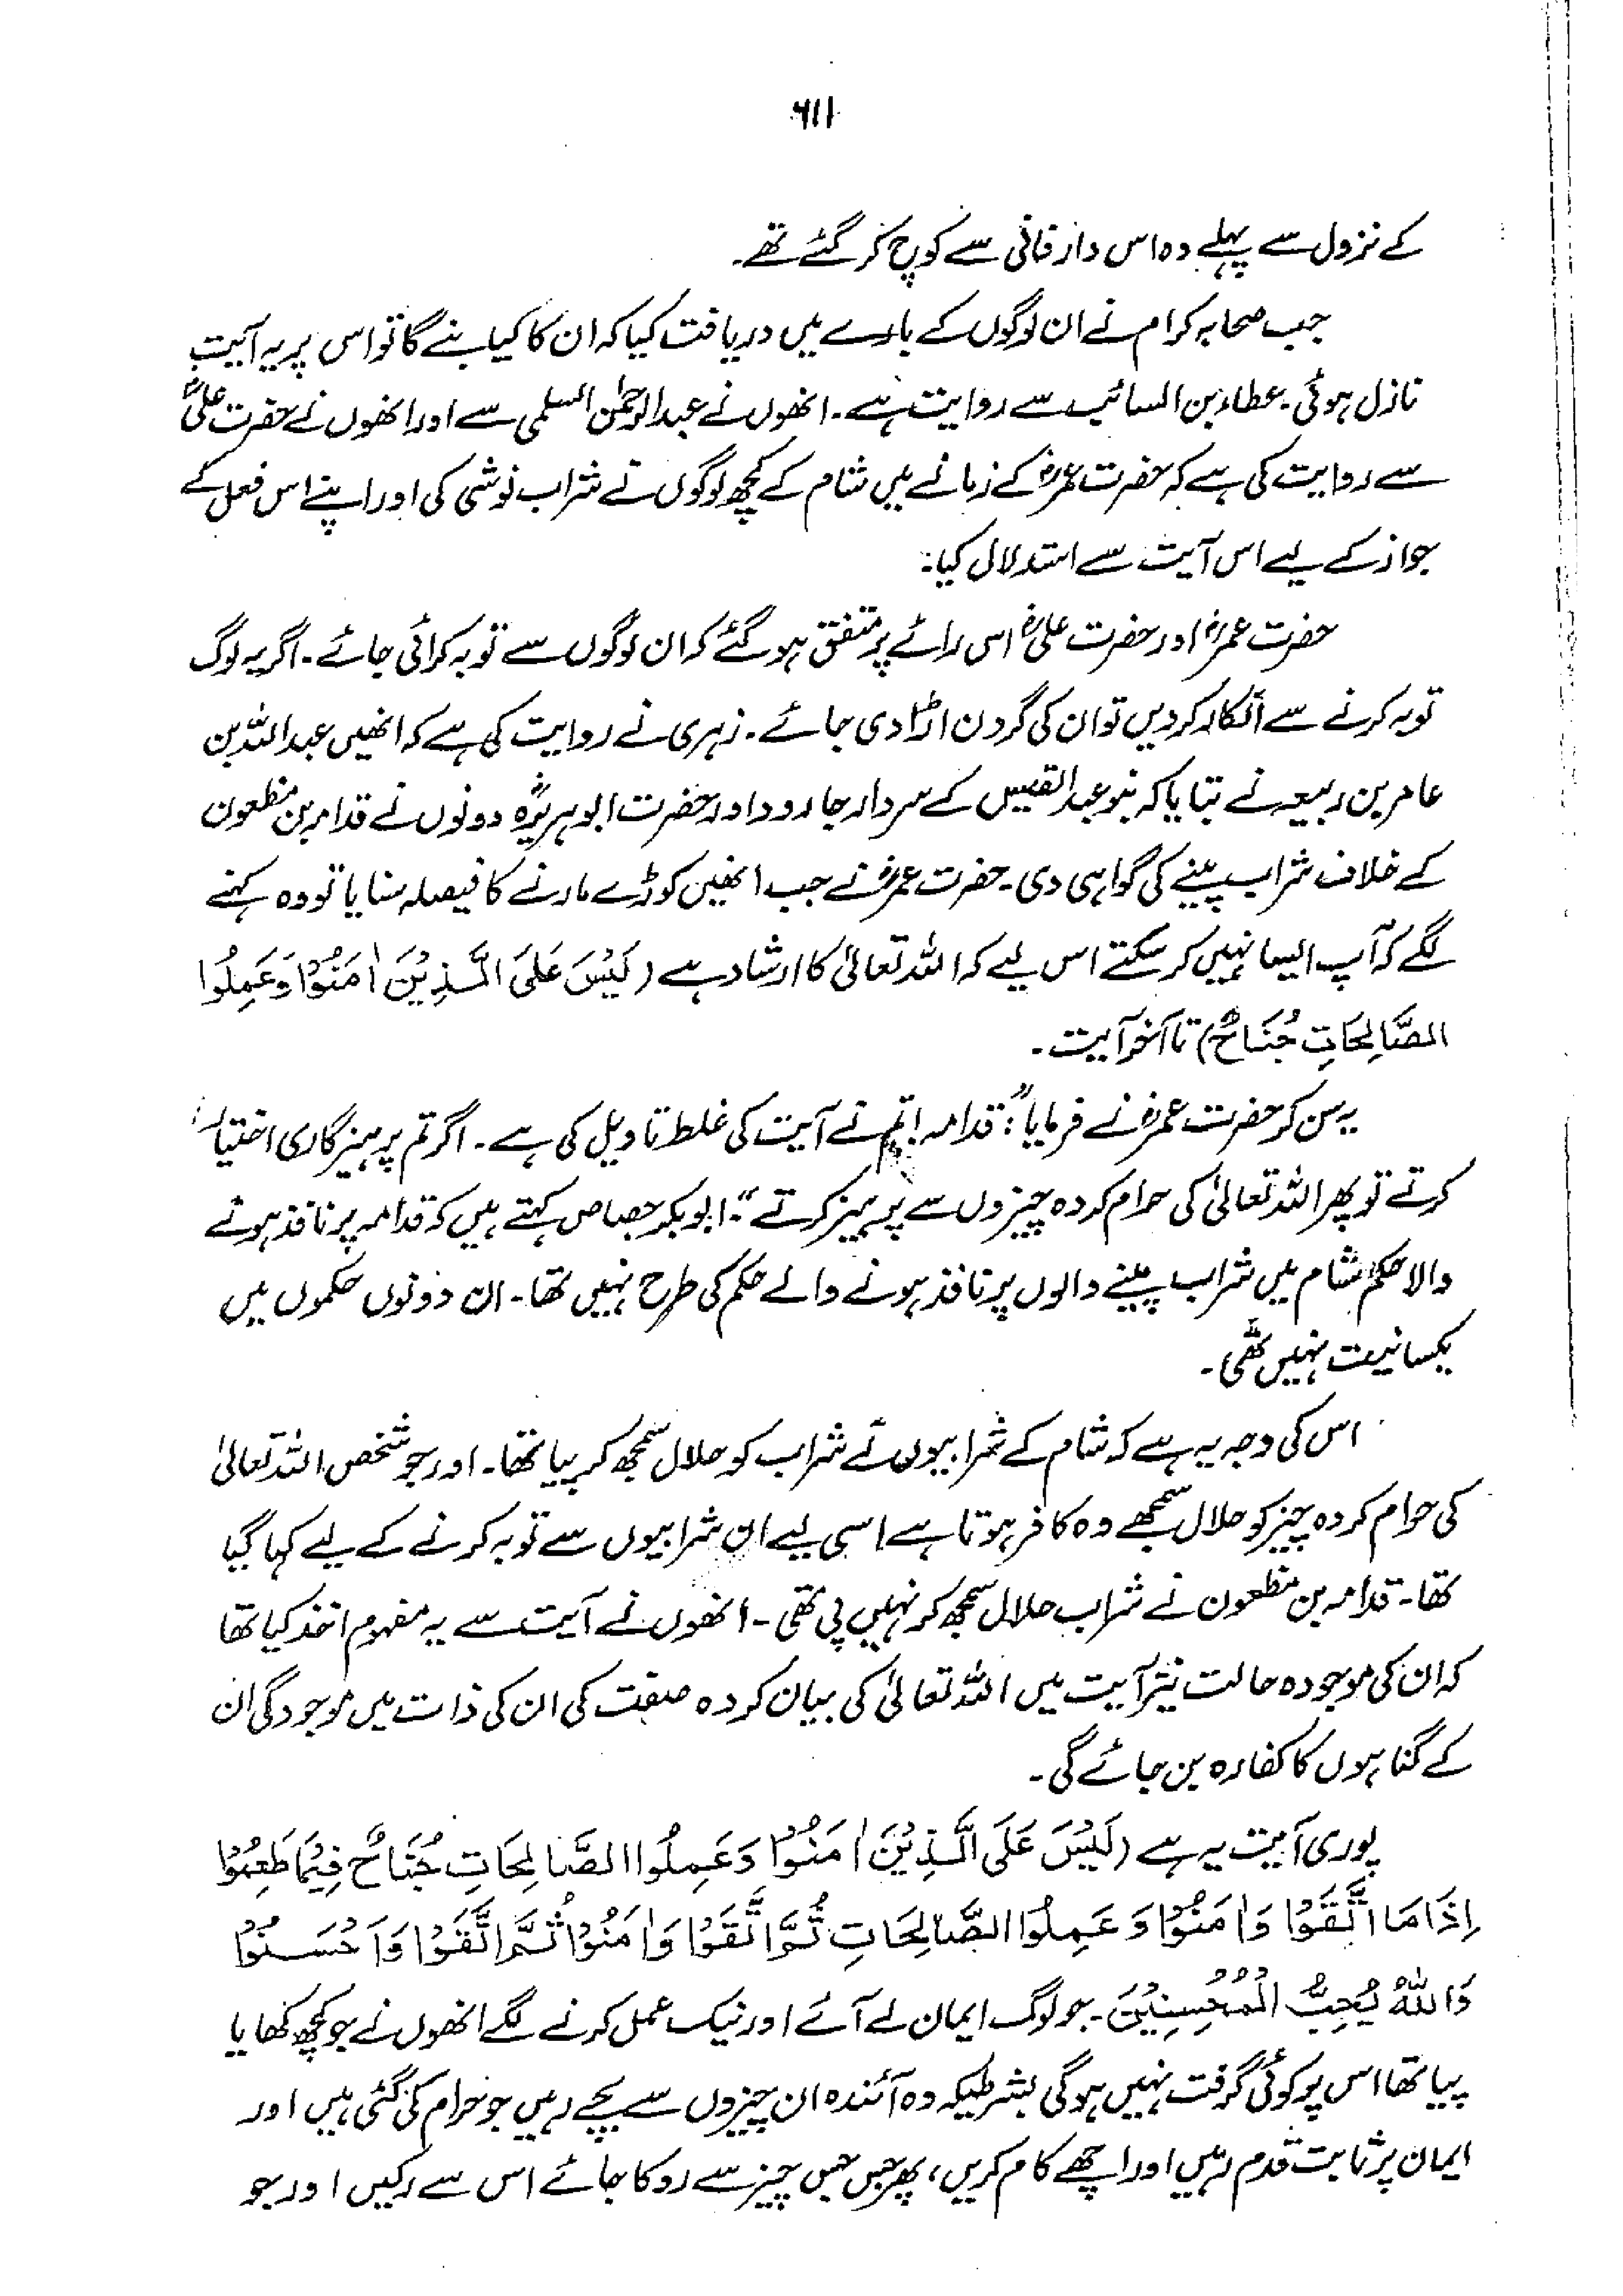 ۶۱۱
کے نزول سے پہلے وہ اس دار فانی سے کوچ کر گئے تھے۔
جب صحابہ کرام نے ان لوگوں کے بارے میں دریافت کیا کہ ان کا کیا بنے گا تو اس پر یہ آیت
نازل ہوئی۔ عطاء بن السائب سے روایت ہے۔ انھوں نے عبدالرحمٰن السلمی سے اور انھوں نے حضرت علیؓ
سے روایت کی ہے کہ حضرت عمرؓ کے زمانے میں شام کے کچھ لوگوں نے شراب نوشی کی اور اپنے اس فعل کے
جواز کے لیے اس آیت سے استدلال کیا:
حضرت عمرؓ اور حضرت علیؓ اس رائے پر متفق ہو گئے کہ ان لوگوں سے توبہ کرائی جائے۔ اگر یہ لوگ
توبہ کرنے سے انکار کر دیں تو ان کی گردن اڑا دی جائے۔ زہری نے روایت کی ہے کہ انھیں عبداللہ بن
عامر بن ربیعہ نے بتایا کہ بنو عبدالقیس کے سردار جارود اور حضرت ابوہریرہؓ دونوں نے قدامہ بن مظعون
کے خلاف شراب پینے کی گواہی دی۔ حضرت عمرؓ نے جب انھیں کوڑے مارنے کا فیصلہ سنایا تو وہ کہنے
لگے کہ آپ ایسا نہیں کر سکتے اس لیے کہ اللہ تعالیٰ کا ارشاد ہے (لَیْسَ عَلَی الَّذِیْنَ اٰمَنُوْا وَعَمِلُوا
الصَّالِحَاتِ جُنَاحٌ) تا آخر آیت۔
یہ سن کر حضرت عمرؓ نے فرمایا: "قدامہ! تم نے آیت کی غلط تاویل کی ہے۔ اگر تم پرہیزگاری اختیار
کرتے تو پھر اللہ تعالیٰ کی حرام کردہ چیزوں سے پرہیز کرتے"۔ ابوبکر جصاص کہتے ہیں کہ قدامہ پر نافذ ہونے
والا حکم شام میں شراب پینے والوں پر نافذ ہونے والے حکم کی طرح نہیں تھا۔ ان دونوں حکموں میں
یکسانیت نہیں تھی۔
اس کی وجہ یہ ہے کہ شام کے شرابیوں نے شراب کو حلال سمجھ کر پیا تھا۔ اور جو شخص اللہ تعالیٰ
کی حرام کردہ چیز کو حلال سمجھے وہ کافر ہوتا ہے اسی لیے ان شرابیوں سے توبہ کرنے کے لیے کہا گیا
تھا۔ قدامہ بن مظعون نے شراب حلال سمجھ کر نہیں پی تھی۔ انھوں نے آیت سے یہ مفہوم اخذ کیا تھا
کہ ان کی موجودہ حالت نیز آیت میں اللہ تعالیٰ کی بیان کردہ صفت کی ان کی ذات میں موجودگی ان
کے گناہوں کا کفارہ بن جائے گی۔
پوری آیت یہ ہے (لَیْسَ عَلَی الَّذِیْنَ اٰمَنُوْا وَعَمِلُوا الصَّالِحَاتِ جُنَاحٌ فِیْمَا طَعِمُوْا
اِذَا مَا اتَّقَوْا وَاٰمَنُوْا وَعَمِلُوا الصَّالِحَاتِ ثُمَّ اتَّقَوْا وَاٰمَنُوْا ثُمَّ اتَّقَوْا وَاَحْسَنُوْا
وَاللهُ یُحِبُّ الْمُحْسِنِیْنَ۔ جو لوگ ایمان لے آئے اور نیک عمل کرنے لگے انھوں نے جو کچھ کھایا
پیا تھا اس پر کوئی گرفت نہیں ہوگی بشرطیکہ وہ آئندہ ان چیزوں سے بچے رہیں جو حرام کی گئی ہیں اور
ایمان پر ثابت قدم رہیں اور اچھے کام کریں، پھر جس جس چیز سے روکا جائے اس سے رکیں اور جو